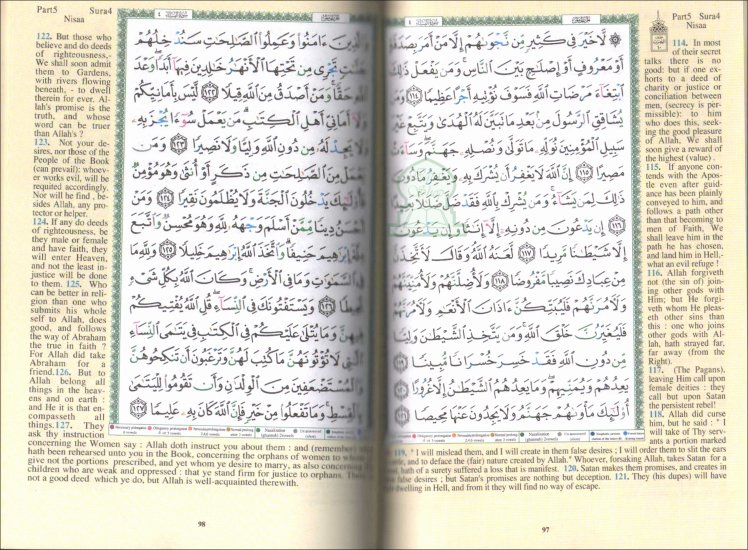 Part5 Sura4
Nisaa
۞ لَّا خَيْرَ فِى كَثِيرٍ مِّن نَّجْوَىٰهُمْ إِلَّا مَنْ أَمَرَ بِصَدَقَةٍ
أَوْ مَعْرُوفٍ أَوْ إِصْلَٰحٍۭ بَيْنَ ٱلنَّاسِ ۚ وَمَن يَفْعَلْ ذَٰلِكَ
ٱبْتِغَآءَ مَرْضَاتِ ٱللَّهِ فَسَوْفَ نُؤْتِيهِ أَجْرًا عَظِيمًا ١١٤ وَمَن
يُشَاقِقِ ٱلرَّسُولَ مِنۢ بَعْدِ مَا تَبَيَّنَ لَهُ ٱلْهُدَىٰ وَيَتَّبِعْ غَيْرَ
سَبِيلِ ٱلْمُؤْمِنِينَ نُوَلِّهِۦ مَا تَوَلَّىٰ وَنُصْلِهِۦ جَهَنَّمَ ۖ وَسَآءَتْ
مَصِيرًا ١١٥ إِنَّ ٱللَّهَ لَا يَغْفِرُ أَن يُشْرَكَ بِهِۦ وَيَغْفِرُ مَا دُونَ
ذَٰلِكَ لِمَن يَشَآءُ ۚ وَمَن يُشْرِكْ بِٱللَّهِ فَقَدْ ضَلَّ ضَلَٰلًۢا بَعِيدًا
١١٦ إِن يَدْعُونَ مِن دُونِهِۦٓ إِلَّآ إِنَٰثًا وَإِن يَدْعُونَ
إِلَّا شَيْطَٰنًا مَّرِيدًا ١١٧ لَّعَنَهُ ٱللَّهُ ۘ وَقَالَ لَأَتَّخِذَنَّ
مِنْ عِبَادِكَ نَصِيبًا مَّفْرُوضًا ١١٨ وَلَأُضِلَّنَّهُمْ وَلَأُمَنِّيَنَّهُمْ
وَلَءَامُرَنَّهُمْ فَلَيُبَتِّكُنَّ ءَاذَانَ ٱلْأَنْعَٰمِ وَلَءَامُرَنَّهُمْ
فَلَيُغَيِّرُنَّ خَلْقَ ٱللَّهِ ۚ وَمَن يَتَّخِذِ ٱلشَّيْطَٰنَ وَلِيًّا
مِّن دُونِ ٱللَّهِ فَقَدْ خَسِرَ خُسْرَانًا مُّبِينًا ١١٩
يَعِدُهُمْ وَيُمَنِّيهِمْ ۖ وَمَا يَعِدُهُمُ ٱلشَّيْطَٰنُ إِلَّا غُرُورًا ١٢٠
أُو۟لَٰٓئِكَ مَأْوَىٰهُمْ جَهَنَّمُ وَلَا يَجِدُونَ عَنْهَا مَحِيصًا ١٢١
114. In most
of their secret
talks there is no
good: but if one ex-
horts to a deed of
charity or justice or
conciliation between
men, (secrecy is per-
missible): to him
who does this, seek-
ing the good pleasure
of Allah, We shall
soon give a reward of
the highest (value) .
115. If anyone con-
tends with the Apos-
tle even after guid-
ance has been plainly
conveyed to him, and
follows a path other
than that becoming to
men of Faith, We
shall leave him in the
path he has chosen,
and land him in Hell,-
what an evil refuge !
116. Allah forgiveth
not (the sin of) join-
ing other gods with
Him; but He forgi-
veth whom He pleas-
eth other sins than
this : one who joins
other gods with Al-
lah, hath strayed far,
far away (from the
Right).
117. (The Pagans),
leaving Him call upon
female deities : they
call but upon Satan
the persistent rebel!
118. Allah did curse
him, but he said : " I
will take of Thy serv-
ants a portion marked
119. " I will mislead them, and I will create in them false desires ; I will order them to slit the ears
and to deface the (fair) nature created by Allah." Whoever, forsaking Allah, takes Satan for a
hath of a surety suffered a loss that is manifest. 120. Satan makes them promises, and creates in
false desires ; but Satan's promises are nothing but deception. 121. They (his dupes) will have
dwelling in Hell, and from it they will find no way of escape.
97
Part5 Sura4
Nisaa
وَٱلَّذِينَ ءَامَنُوا۟ وَعَمِلُوا۟ ٱلصَّٰلِحَٰتِ سَنُدْخِلُهُمْ
جَنَّٰتٍ تَجْرِى مِن تَحْتِهَا ٱلْأَنْهَٰرُ خَٰلِدِينَ فِيهَآ أَبَدًا ۖ وَعْدَ
ٱللَّهِ حَقًّا ۚ وَمَنْ أَصْدَقُ مِنَ ٱللَّهِ قِيلًا ١٢٢ لَّيْسَ بِأَمَانِيِّكُمْ
وَلَآ أَمَانِىِّ أَهْلِ ٱلْكِتَٰبِ ۗ مَن يَعْمَلْ سُوٓءًا يُجْزَ بِهِۦ
وَلَا يَجِدْ لَهُۥ مِن دُونِ ٱللَّهِ وَلِيًّا وَلَا نَصِيرًا ١٢٣ وَمَن
يَعْمَلْ مِنَ ٱلصَّٰلِحَٰتِ مِن ذَكَرٍ أَوْ أُنثَىٰ وَهُوَ مُؤْمِنٌ
فَأُو۟لَٰٓئِكَ يَدْخُلُونَ ٱلْجَنَّةَ وَلَا يُظْلَمُونَ نَقِيرًا ١٢٤ وَمَنْ
أَحْسَنُ دِينًا مِّمَّنْ أَسْلَمَ وَجْهَهُۥ لِلَّهِ وَهُوَ مُحْسِنٌ وَٱتَّبَعَ
مِلَّةَ إِبْرَٰهِيمَ حَنِيفًا ۗ وَٱتَّخَذَ ٱللَّهُ إِبْرَٰهِيمَ خَلِيلًا ١٢٥ وَلِلَّهِ مَا
فِى ٱلسَّمَٰوَٰتِ وَمَا فِى ٱلْأَرْضِ ۚ وَكَانَ ٱللَّهُ بِكُلِّ شَىْءٍ
مُّحِيطًا ١٢٦ وَيَسْتَفْتُونَكَ فِى ٱلنِّسَآءِ ۖ قُلِ ٱللَّهُ يُفْتِيكُمْ
فِيهِنَّ وَمَا يُتْلَىٰ عَلَيْكُمْ فِى ٱلْكِتَٰبِ فِى يَتَٰمَى ٱلنِّسَآءِ
ٱلَّٰتِى لَا تُؤْتُونَهُنَّ مَا كُتِبَ لَهُنَّ وَتَرْغَبُونَ أَن تَنكِحُوهُنَّ
وَٱلْمُسْتَضْعَفِينَ مِنَ ٱلْوِلْدَٰنِ وَأَن تَقُومُوا۟ لِلْيَتَٰمَىٰ
بِٱلْقِسْطِ ۚ وَمَا تَفْعَلُوا۟ مِنْ خَيْرٍ فَإِنَّ ٱللَّهَ كَانَ بِهِۦ عَلِيمًا ١٢٧
122. But those who
believe and do deeds
of righteousness,-
We shall soon admit
them to Gardens,
with rivers flowing
beneath, - to dwell
therein for ever. Al-
lah's promise is the
truth, and whose
word can be truer
than Allah's ?
123. Not your de-
sires, nor those of the
People of the Book
(can prevail): whoev-
er works evil, will be
requited accordingly.
Nor will he find , be-
sides Allah, any pro-
tector or helper.
124. If any do deeds
of righteousness, be
they male or female
and have faith, they
will enter Heaven,
and not the least in-
justice will be done
to them. 125. Who
can be better in reli-
gion than one who
submits his whole
self to Allah, does
good, and follows
the way of Abraham
the true in faith ?
For Allah did take
Abraham for a
friend.126. But to
Allah belong all
things in the heav-
ens and on earth :
and He it is that en-
compasseth all
things.127. They
ask thy instruction
concerning the Women say : Allah doth instruct you about them : and (remember) what
hath been rehearsed unto you in the Book, concerning the orphans of women to whom
give not the portions prescribed, and yet whom ye desire to marry, as also concerning
children who are weak and oppressed : that ye stand firm for justice to orphans. There
not a good deed which ye do, but Allah is well-acquainted therewith.
98